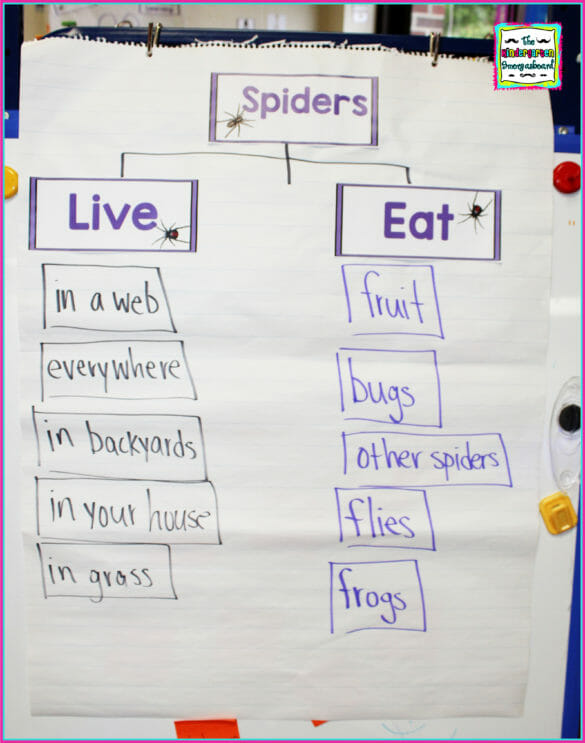 The
Kindergarten
Smorgasboard
Spiders
Live
Eat
in a web
everywhere
in backyards
in your house
in grass
fruit
bugs
other spiders
flies
frogs